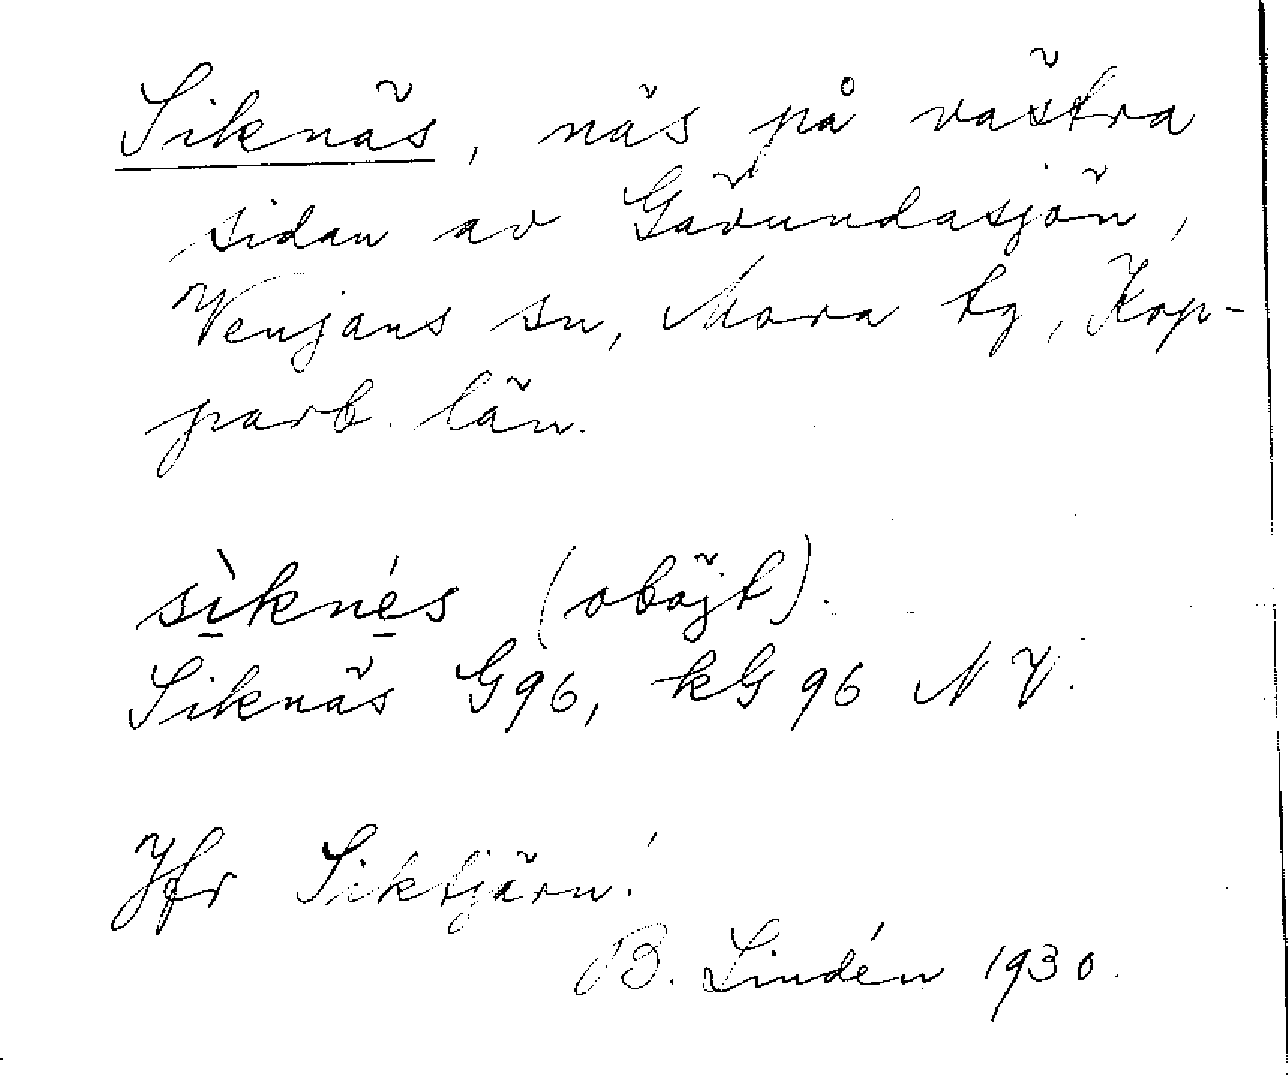 Siknäs, näs på västra
sidan av Gävundasjön,
Venjans sn, Mora tg, Kop-
parb. län.
sìknés (oböjt).
Siknäs G96, kG 96 NV.
Jfr Siktjärn!
B. Lindén 1930.